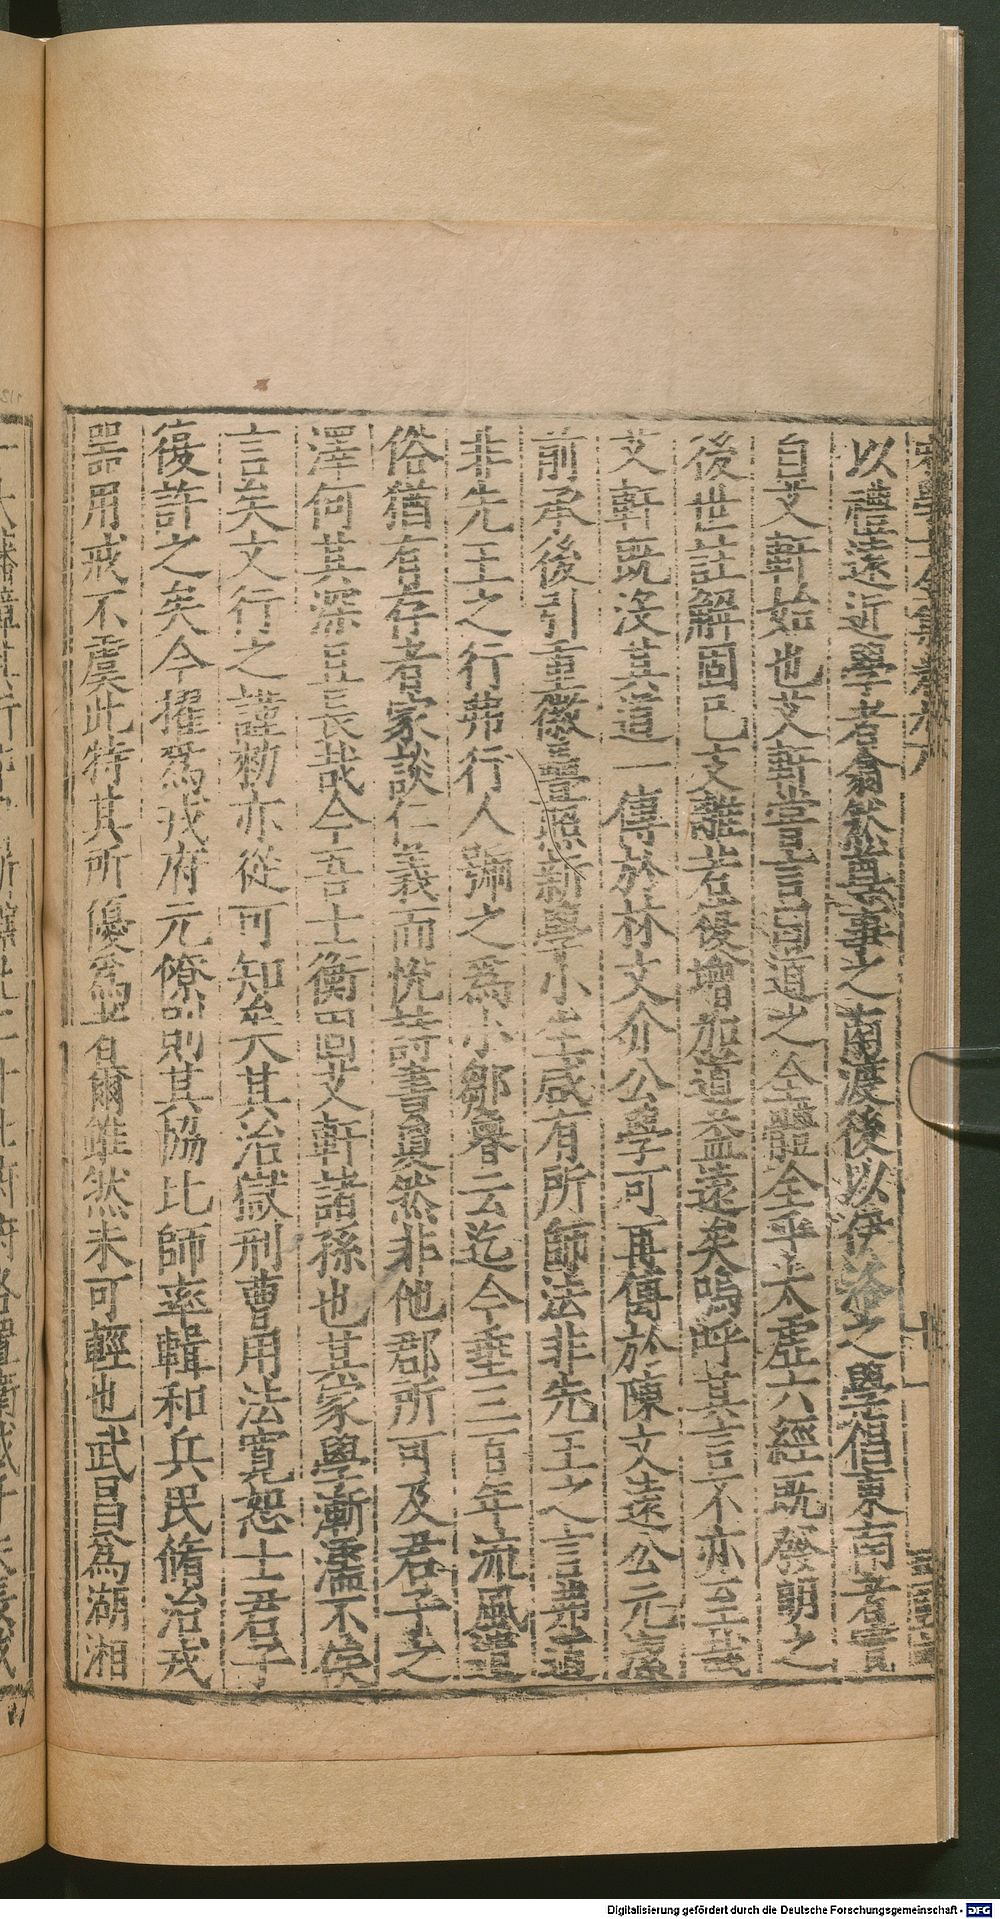 以禮遠近學者翕然尊事之南渡後以伊洛之學倡東南者實
自艾軒始也艾軒嘗言曰道之全體全乎太虛六經既發明之
後世註解固已支離若復增加道益遠矣嗚呼其言不亦至哉
艾軒既沒其道一傳於林文介公學可再傳於陳文遠公元
前承後引重徽疊照新學小生咸有所師法非先王之言弗道
非先王之行弗行人號之為小鄒魯云迄今垂三百年流風遺
俗猶有存者家談仁義而悅詩書與然非他郡所可及君子之
澤何其深且長哉今吾士衡回艾軒諸孫也其家學漸濡不俟
言矣文行之謹勑亦從可知矣其治獄刑曹用法寬恕士君子
復許之矣今擢為戎府元僚則其協比師率輯和兵民脩治戎
器用戒不虞此特其所優為者爾雖然未可輕也武昌為湖湘
Digitalisierung gefördert durch die Deutsche Forschungsgemeinschaft - DFG